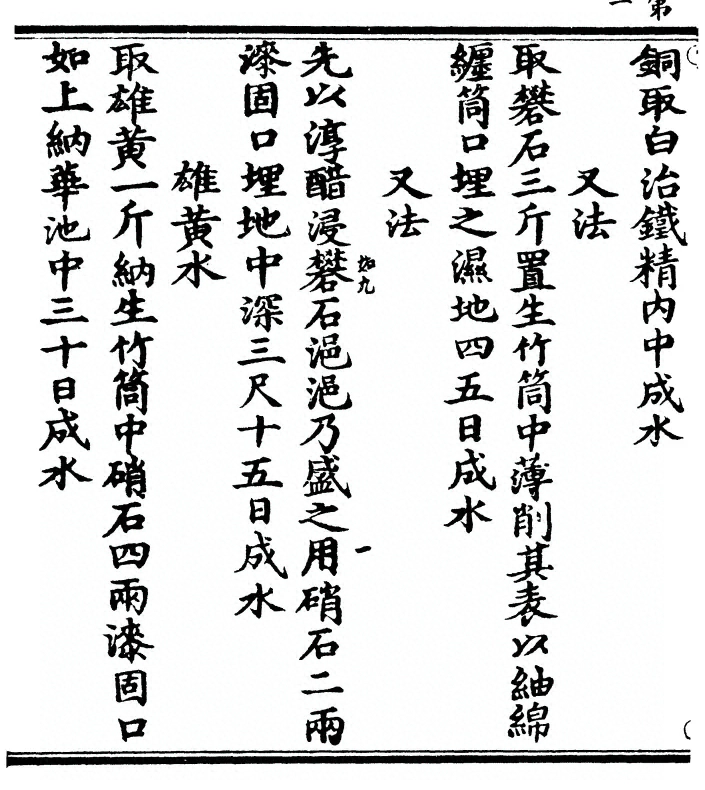 銅取白治鐵精内中成水
又法
取礬石三斤置生竹筒中薄削其表以紬綿
纏筒口埋之濕地四五日成水
又法
先以淳醋浸礬石浥浥乃盛之用硝石二兩
九
一
漆固口埋地中深三尺十五日成水
雄黃水
取雄黃一斤納生竹筒中硝石四兩漆固口
如上納華池中三十日成水